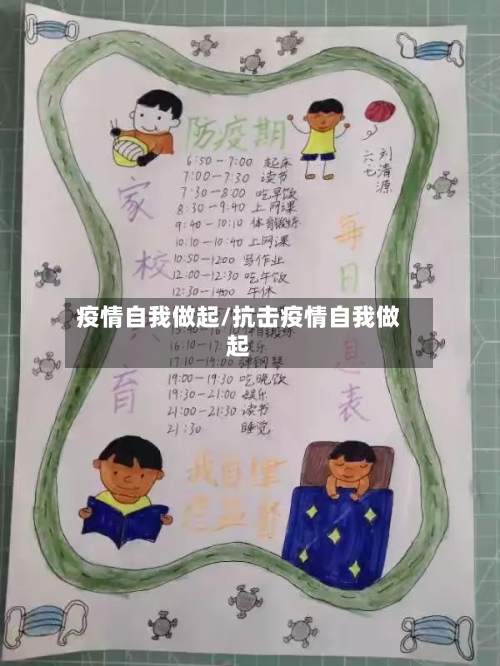 防疫期
刘清源
六七
家校 育
每日 息表
6:50-7:00 起床
7:00-7:30 读书
7:30-8:00 吃早饭
8:30-9:40 上网课
9:40-10:10 体育锻练
10:10-10:40 上网课
10:50-1200 写作业
12:00-12:30 吃午饭
12:30-1400 午休
疫情自我做起/抗击疫情自我做
起
16:10-17: 娱乐
17:10-19:00 弹钢琴
19:00-19:30 吃晚饭
19:30-21:00 娱乐
21:00-21:30 读书
21:30 睡觉
我自律